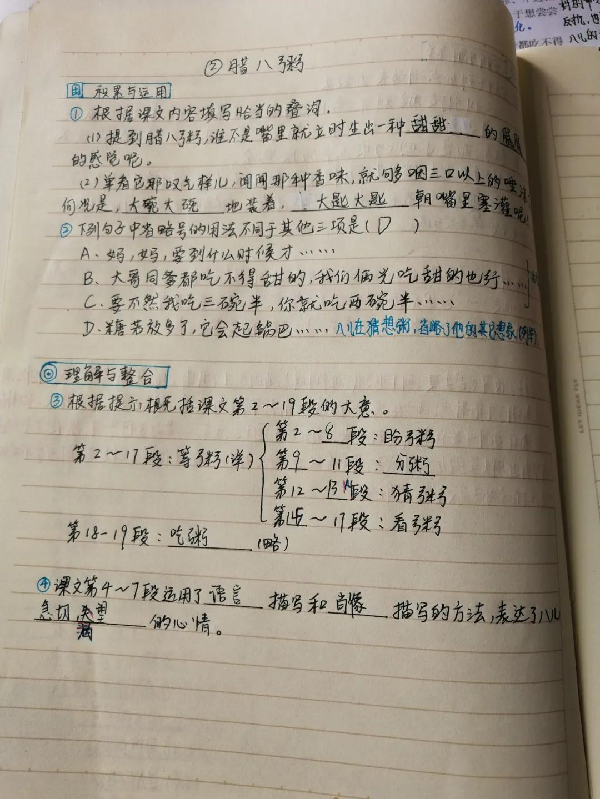 ② 腊八粥
积累与运用
① 根据课文内容填写恰当的叠词.
(1)提到腊八粥,谁不是嘴里就立时生出一种 甜甜 的 腻腻
的感觉呢。
(2)单看它那叹气样儿,闻闻那种香味,就够咽三口以上的唾沫
何况是,大碗大碗 地装着, 大匙大匙 朝嘴里塞灌呢
② 下列句子中省略号的用法不同于其他三项是( D )
A、妈,妈,要到什么时候才……
B、大哥同爹都吃不得甜的,我们俩光吃甜的也行……
C、要不然我吃三碗半,你就吃两碗半……
D、糖若放多了,它会起锅巴…… 八儿在猜想粥,省略了他的其它想象
理解与整合
③ 根据提示,概括课文第2～19段的大意。
第2～8 段:盼粥
第2～17段:等粥(详)
第9～11段:分粥
第12～13段:猜粥
第14～17段:看粥
第18-19段:吃粥 (略)
④ 课文第4～7段运用了 语言 描写和 肖像 描写的方法,表达了八儿
急切 失望 的心情。
料的
于想尝尝
都吃不得
八儿的